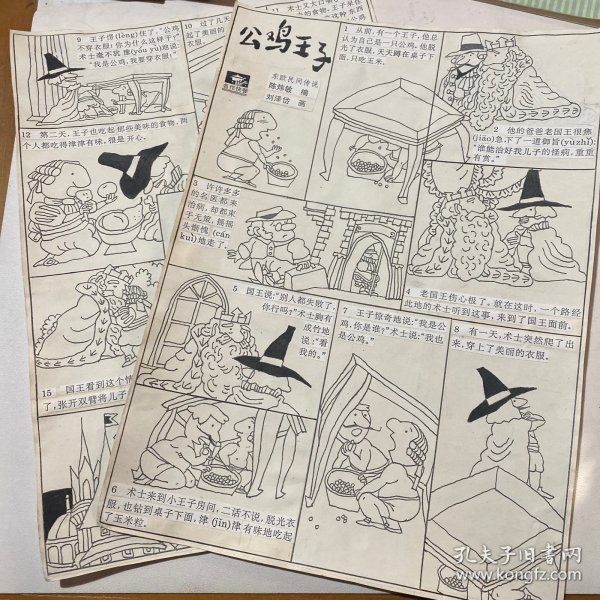 公鸡王子
东欧民间传说
陈炜敏 编
刘泽岱 画
1 从前，有一个王子，他总
认为自己是一只公鸡。他脱
光了衣服，天天蹲在桌子下
面，只吃玉米。
2 他的爸爸老国王很焦
(jiāo)急下了一道御旨(yùzhǐ)：
“谁能治好我儿子的怪病，重重
有赏。”
3 许许多多
的名医都来
治病，却都束
手无策，摇摇
头惭愧(cán
kuì)地走了。
4 老国王伤心极了。就在这时，一个路经
此地的术士听到这事，来到了国王面前。
5 国王说：“别人都失败了，
你行吗？”术士胸有
成竹地
说：“看
我的。”
6 术士来到小王子房间，二话不说，脱光衣
服，也钻到桌子下面，津(jīn)津有味地吃起
了玉米粒。
7 王子惊奇地说：“我是公
鸡，你是谁？”术士说：“我也
是公鸡。”
8 有一天，术士突然爬了出
来，穿上了美丽的衣服。
9 王子愣(lèng)住了，“公鸡
不穿衣服！你为什么这样干？”
术士毫不犹豫(yóu yù)地说：
“我是公鸡，我要穿衣服！”
10 过了几天
起了美丽的
衣服。
11 术士又大口
12 第二天，王子也吃起那些美味的食物，两
个人都吃得津津有味，很是开心。
15 国王看到这个情
了，张开双臂将儿子
孔夫子旧书网
www.kongfz.com